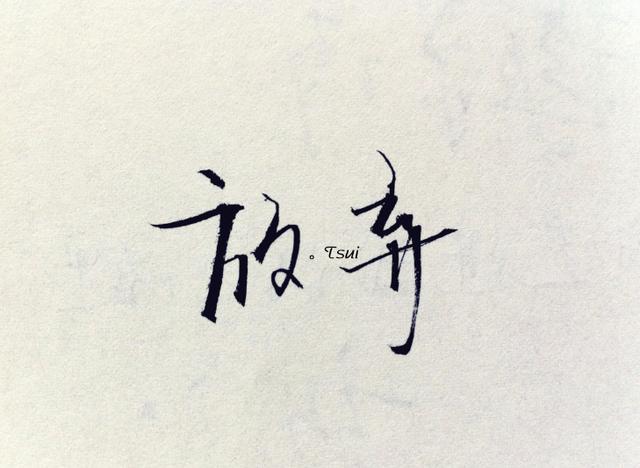 放弃
。Tsui